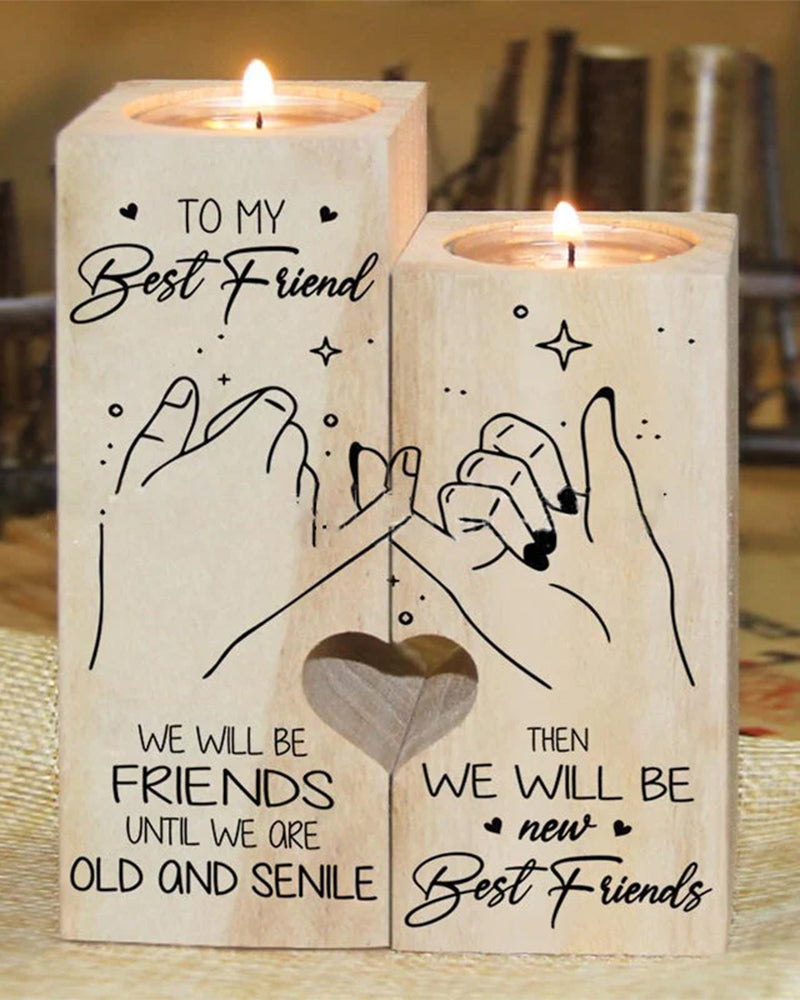 TO MY
Best Friend
WE WILL BE
FRIENDS
UNTIL WE ARE
OLD AND SENILE
THEN
WE WILL BE
new
Best Friends